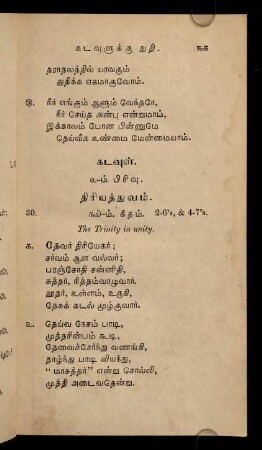 கடவுளுக்கு துதி.
தராதலத்தில் யாவகும்
துதிக்க ஏகமாகுவோம்.
௫. நீர் எங்கும் ஆளும் வேந்தரே,
நீர் செய்த அன்பு என்றுமாம்,
இக்காலம் போன பின்னுமே
தெய்வீக உண்மை மேன்மையாம்.
கடவுள்.
௨-ம் பிரிவு.
திரியத்துவம்.
30. ௩௰-ம். கீதம். 2-6's, & 4-7's.
The Trinity in unity.
௧. தேவர் திரியேகர்;
சர்வம் ஆள வல்லர்;
பரஞ்சோதி சன்னிதி,
சுத்தர், நித்தம்வாழுவார்.
தூதர், உள்ளம், உருகி,
நேசக் கடல் முழ்குவார்.
௨. தெய்வ நேசம் பாடி,
முத்தரின்பம் கூடி,
தேவைச்சேர்ந்து வணங்கி,
தாழ்ந்து பாடி வியந்து,
"மாசுத்தர்" என்று சொல்லி,
முத்தி அடைவதென்று.